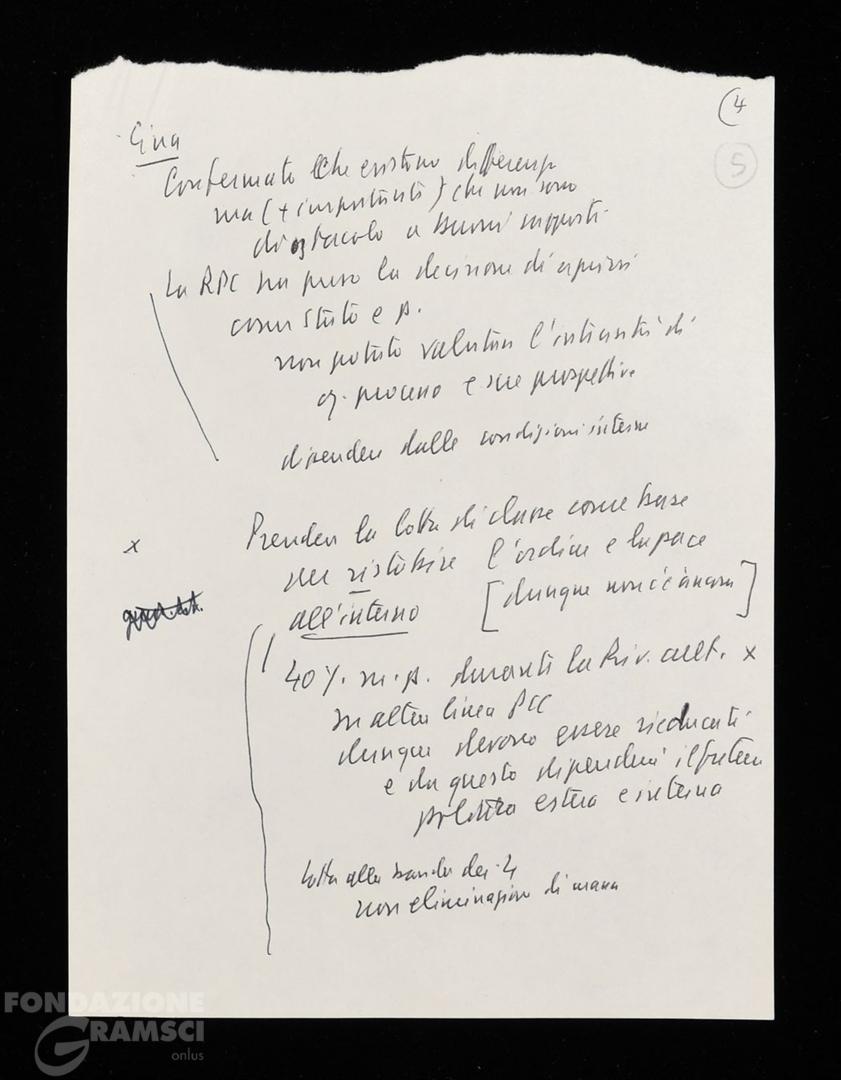 (4
5
Cina
Confermato che esistono differenze
ma (+ importante) che non sono
di ostacolo a buoni rapporti
La RPC ha preso la decisione di aprirsi
come Stato e p.
non potuto valutare l'intensità di
q. processo e sue prospettive
dipender dalle condizioni interne
x Prender la lotta di classe come base
per ristabilire l'ordine e la pace
all'interno [dunque non c'è ancora]
40% m. p. durante la Riv. cult. x
in altra linea PCC
dunque devono essere rieducati
e da questo dipenderà il futuro
politica estera e interna
lotta alla banda dei 4
non eliminazione di massa
FONDAZIONE
GRAMSCI
onlus